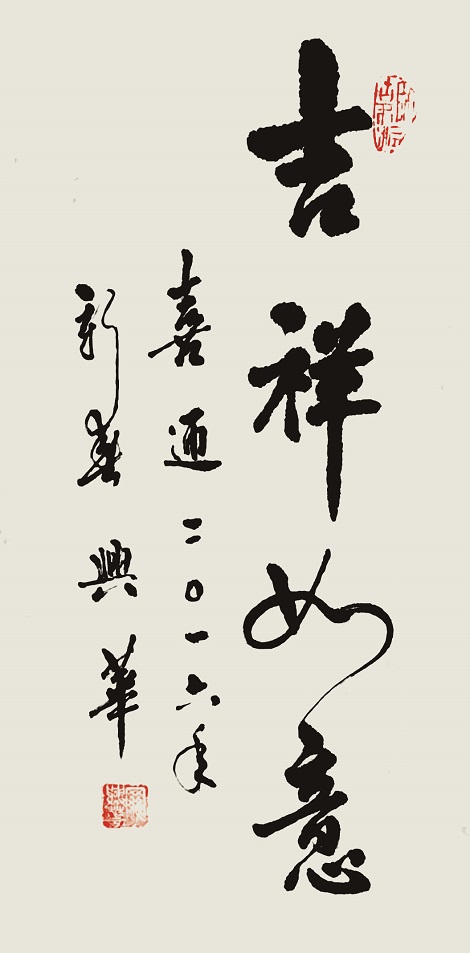 吉祥如意
喜迎二〇一六年
新春興華